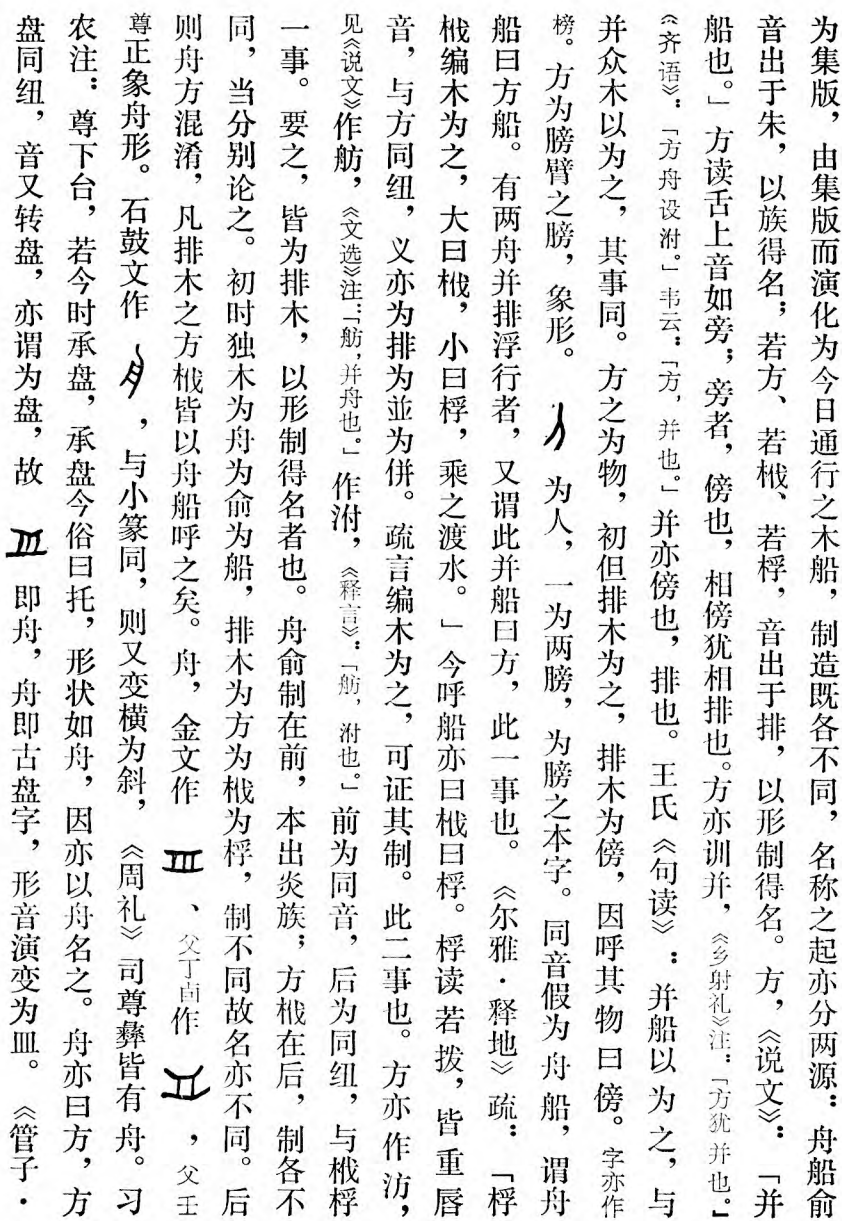 为集版，由集版而演化为今日通行之木船，制造既各不同，名称之起亦分两源：舟船俞
音出于朱，以族得名；若方、若橃、若桴，音出于排，以形制得名。方，《说文》：「并
船也。」方读舌上音如旁；旁者，傍也，相傍犹相排也。方亦训并，《乡射礼》注：「方犹并也。」
《齐语》：「方舟设泭。」韦云：「方，并也。」并亦傍也，排也。王氏《句读》：并船以为之，与
并众木以为之，其事同。方之为物，初但排木为之，排木为傍，因呼其物曰傍。字亦作
榜。方为膀臂之膀，象形。 为人，一为两膀，为膀之本字。同音假为舟船，谓舟
船曰方船。有两舟并排浮行者，又谓此并船曰方，此一事也。《尔雅·释地》疏：「桴
栰编木为之，大曰栰，小曰桴，乘之渡水。」今呼船亦曰栰曰桴。桴读若拨，皆重唇
音，与方同纽，义亦为排为並为併。疏言编木为之，可证其制。此二事也。方亦作汸，
见《说文》作舫，《文选》注：「舫，并舟也。」作泭，《释言》：「舫，泭也。」前为同音，后为同纽，与栰桴
一事。要之，皆为排木，以形制得名者也。舟俞制在前，本出炎族；方栰在后，制各不
同，当分别论之。初时独木为舟为俞为船，排木为方为栰为桴，制不同故名亦不同。后
则舟方混淆，凡排木之方栰皆以舟船呼之矣。舟，金文作 、父丁卣作 ，父壬
尊正象舟形。石鼓文作 ，与小篆同，则又变横为斜，《周礼》司尊彝皆有舟。习
农注：尊下台，若今时承盘，承盘今俗曰托，形状如舟，因亦以舟名之。舟亦曰方，方
盘同纽，音又转盘，亦谓为盘，故 即舟，舟即古盘字，形音演变为皿。《管子·